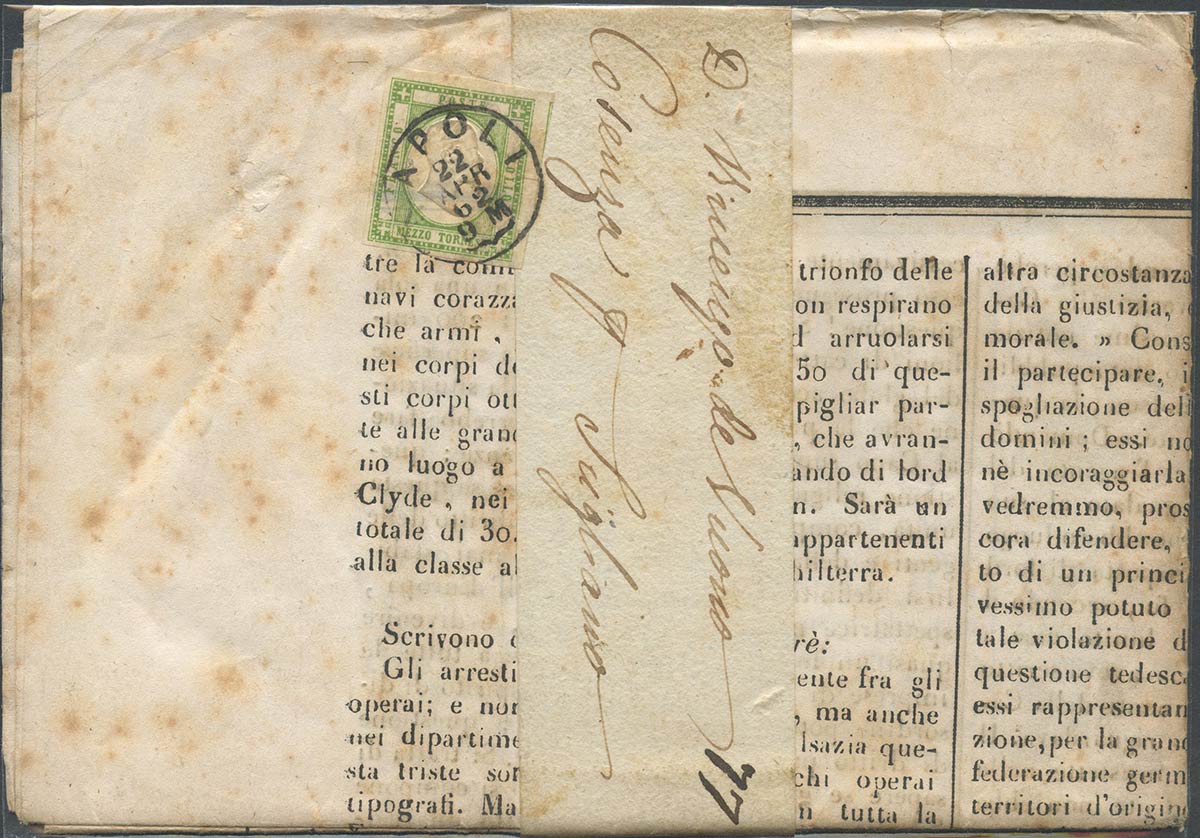 POSTE
MEZZO TOR
APOLI
22
APR
62
9 M
D. Vincenzo de Vuono
Cosenza p Scigliano
77
tre la com
navi corazza
che armi ,
nei corpi de
sti corpi ott
te alle grand
no luogo a
Clyde , nei
totale di 30.
alla classe al
Scrivono d
Gli arresti
operai; e non
nei dipartime
sta triste sor
tipografi. Ma
trionfo delle
on respirano
d arruolarsi
50 di que-
pigliar par-
, che avran-
ando di lord
n. Sarà un
appartenenti
hilterra.
rè:
ente fra gli
, ma anche
lsazia que-
chi operai
n tutta la
altra circostanza
della giustizia,
morale. » Cons
il partecipare, i
spogliazione dell
domini ; essi no
nè incoraggiarla
vedremmo, pros
cora difendere,
to di un princi
vessimo potuto
tale violazione d
questione tedesca
essi rappresentan
zione, per la grand
federazione germ
territori d'origin